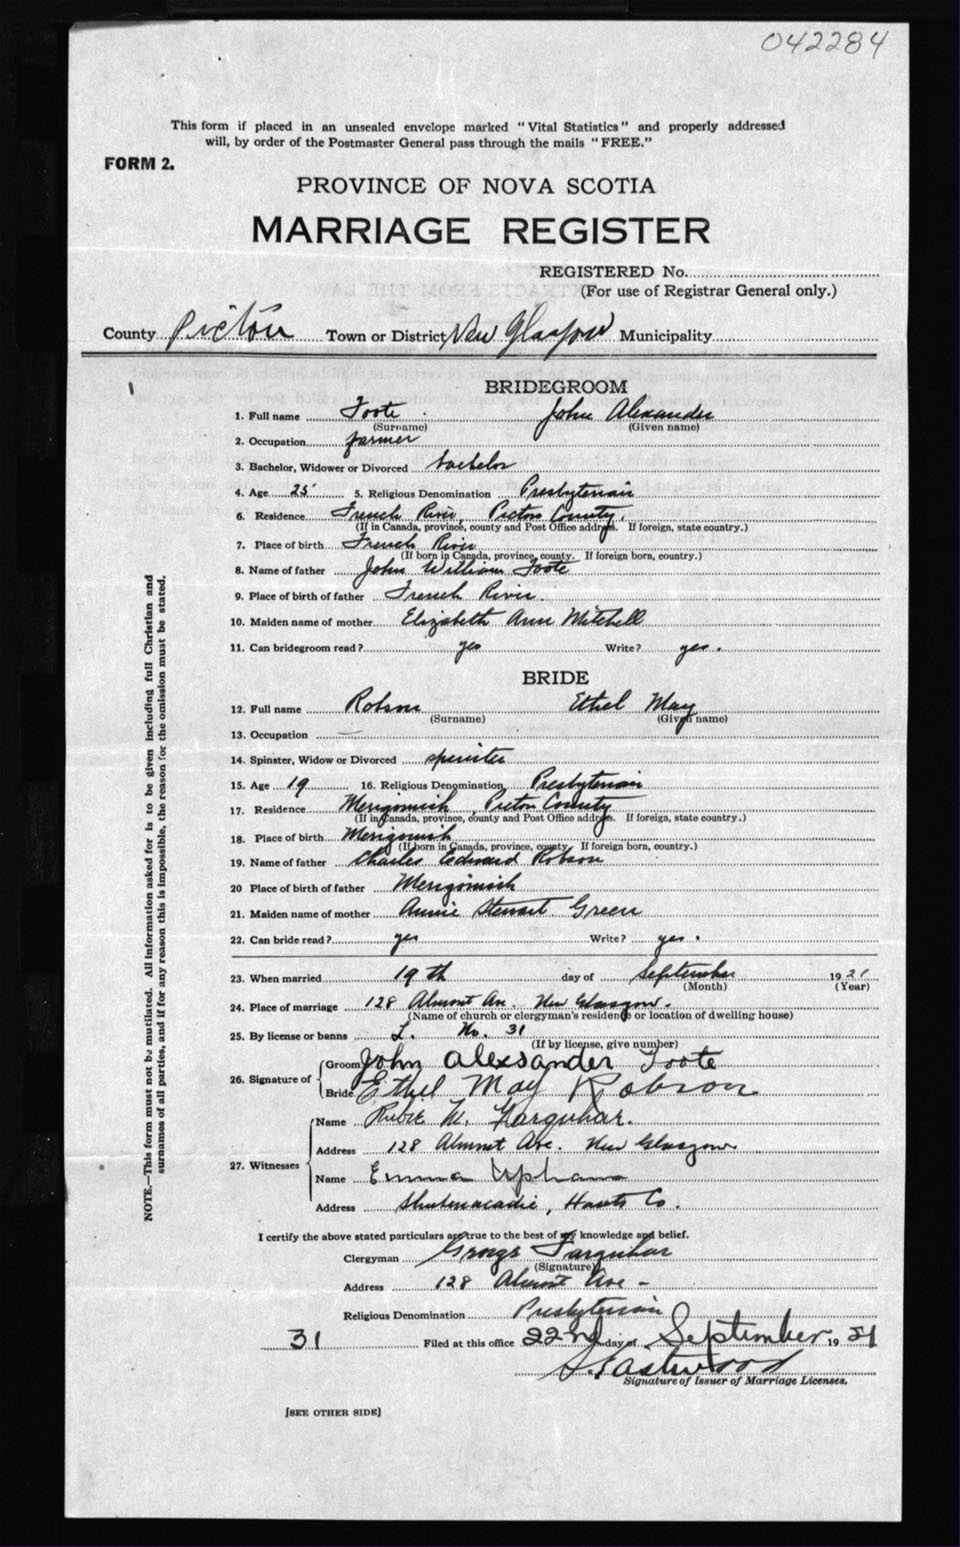 042284
This form if placed in an unsealed envelope marked "Vital Statistics" and properly addressed
will, by order of the Postmaster General pass through the mails "FREE."
FORM 2.
PROVINCE OF NOVA SCOTIA
MARRIAGE REGISTER
REGISTERED No.
(For use of Registrar General only.)
County Pictou Town or District New Glasgow Municipality
BRIDEGROOM
1. Full name Foote John Alexander
(Surname) (Given name)
2. Occupation farmer
3. Bachelor, Widower or Divorced bachelor
4. Age 25 5. Religious Denomination Presbyterian
6. Residence French River, Pictou County.
(If in Canada, province, county and Post Office address. If foreign, state country.)
7. Place of birth French River
(If born in Canada, province, county. If foreign born, country.)
8. Name of father John William Foote
9. Place of birth of father French River.
10. Maiden name of mother Elizabeth Ann Mitchell
11. Can bridegroom read? yes Write? yes.
BRIDE
12. Full name Robson Ethel May
(Surname) (Given name)
13. Occupation —
14. Spinster, Widow or Divorced spinster
15. Age 19 16. Religious Denomination Presbyterian
17. Residence Merigomish, Pictou County
(If in Canada, province, county and Post Office address. If foreign, state country.)
18. Place of birth Merigomish
(If born in Canada, province, county. If foreign born, country.)
19. Name of father Charles Edward Robson
20 Place of birth of father Merigomish
21. Maiden name of mother Annie Stewart Green
22. Can bride read? yes Write? yes.
23. When married 19th day of September 1921
(Month) (Year)
24. Place of marriage 128 Almont Av. New Glasgow.
(Name of church or clergyman's residence or location of dwelling house)
25. By license or banns L. No. 31
(If by license, give number)
26. Signature of Groom John Alexsander Foote
Bride Ethel May Robson
27. Witnesses
Name M. Farquhar.
Address 128 Almont Ave. New Glasgow
Name Emma Upham
Address Shubenacadie, Hants Co.
I certify the above stated particulars are true to the best of my knowledge and belief.
Clergyman George Farquhar
(Signature)
Address 128 Almont Ave -
Religious Denomination Presbyterian
31 Filed at this office 22nd day of September 1921
Eastwood
Signature of Issuer of Marriage Licenses.
[SEE OTHER SIDE]
NOTE.—This form must not be mutilated. All information asked for is to be given including full Christian and
surnames of all parties, and if for any reason this is impossible, the reason for the omission must be stated.